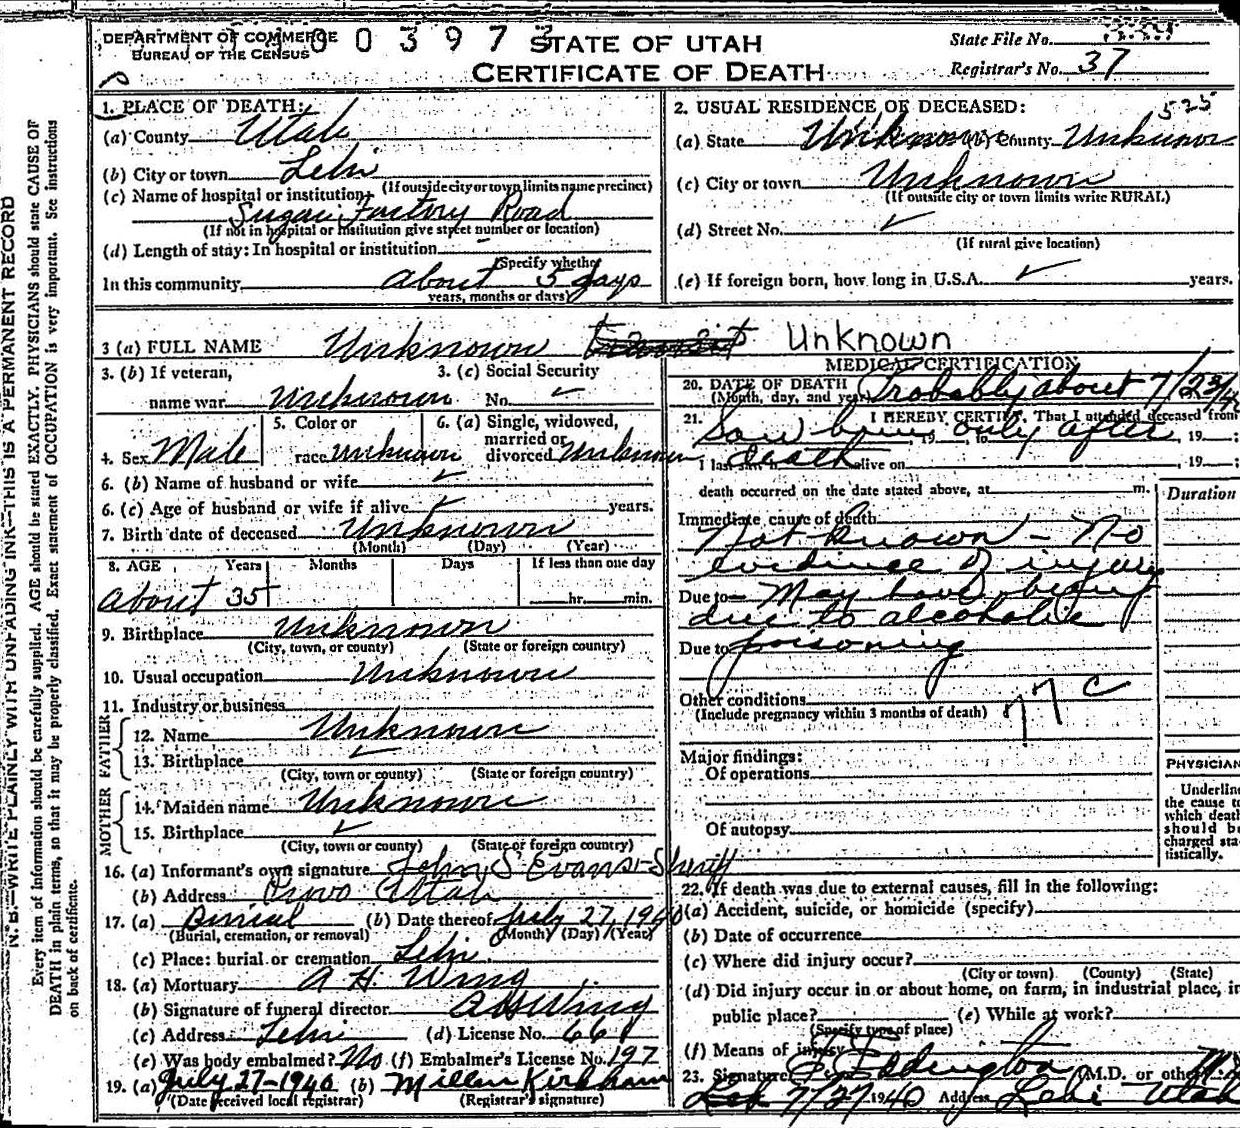 DEPARTMENT OF COMMERCE
BUREAU OF THE CENSUS
003973
STATE OF UTAH
CERTIFICATE OF DEATH
State File No.
Registrar's No. 37
1. PLACE OF DEATH:
(a) County Utah
(b) City or town Lehi
(If outside city or town limits name precinct)
(c) Name of hospital or institution
Sugar Factory Road
(If not in hospital or institution give street number or location)
(d) Length of stay: In hospital or institution -
(Specify whether
In this community about 5 days
years, months or days)
2. USUAL RESIDENCE OF DECEASED: 525
(a) State Unknown (b) County Unknown
(c) City or town Unknown
(If outside city or town limits write RURAL)
(d) Street No. ✓
(If rural give location)
(e) If foreign born, how long in U.S.A. ✓ years.
3 (a) FULL NAME Unknown Unknown
3. (b) If veteran,
name war Unknown
3. (c) Social Security
No. ✓
4. Sex Male
5. Color or
race unknown
6. (a) Single, widowed,
married or
divorced Unknown
6. (b) Name of husband or wife ✓
6. (c) Age of husband or wife if alive ✓ years.
7. Birth date of deceased Unknown
(Month) (Day) (Year)
8. AGE Years Months Days If less than one day
about 35 hr. min.
9. Birthplace Unknown
(City, town, or county) (State or foreign country)
10. Usual occupation Unknown
11. Industry or business
FATHER
12. Name Unknown
13. Birthplace ✓
(City, town or county) (State or foreign country)
MOTHER
14. Maiden name Unknown
15. Birthplace ✓
(City, town or county) (State or foreign country)
16. (a) Informant's own signature John S Evans - Sheriff
(b) Address Provo Utah
17. (a) Burial (b) Date thereof July 27, 1940
(Burial, cremation, or removal) (Month) (Day) (Year)
(c) Place: burial or cremation Lehi
18. (a) Mortuary A H. Wing
(b) Signature of funeral director A H Wing
(c) Address Lehi (d) License No. 661
(e) Was body embalmed? No (f) Embalmer's License No. 197
19. (a) July 27-1940 (b) Kirkham
(Date received local registrar) (Registrar's signature)
MEDICAL CERTIFICATION
20. DATE OF DEATH Probably about 7/23/40
(Month, day, and year)
21. I HEREBY CERTIFY, That I attended deceased from
Saw him only after , 19 :
I last saw h death alive on , 19 :
death occurred on the date stated above, at m.
Duration
Immediate cause of death
Not known - No
evidence of injury
Due to May have been
due to alcoholic
Due to poisoning
Other conditions
(Include pregnancy within 3 months of death)
77 c
Major findings:
Of operations
Of autopsy
PHYSICIAN
Underline
the cause to
which death
should be
charged sta-
tistically.
22. If death was due to external causes, fill in the following:
(a) Accident, suicide, or homicide (specify)
(b) Date of occurrence
(c) Where did injury occur?
(City or town) (County) (State)
(d) Did injury occur in or about home, on farm, in industrial place, in
public place? (e) While at work?
(Specify type of place)
(f) Means of injury
23. Signature Eddington (M.D. or other)
7/27 1940 Address Lehi Utah
N. B.—WRITE PLAINLY WITH UNFADING INK—THIS IS A PERMANENT RECORD
Every item of information should be carefully supplied. AGE should be stated EXACTLY. PHYSICIANS should state CAUSE OF
DEATH in plain terms, so that it may be properly classified. Exact statement of OCCUPATION is very important. See instructions
on back of certificate.